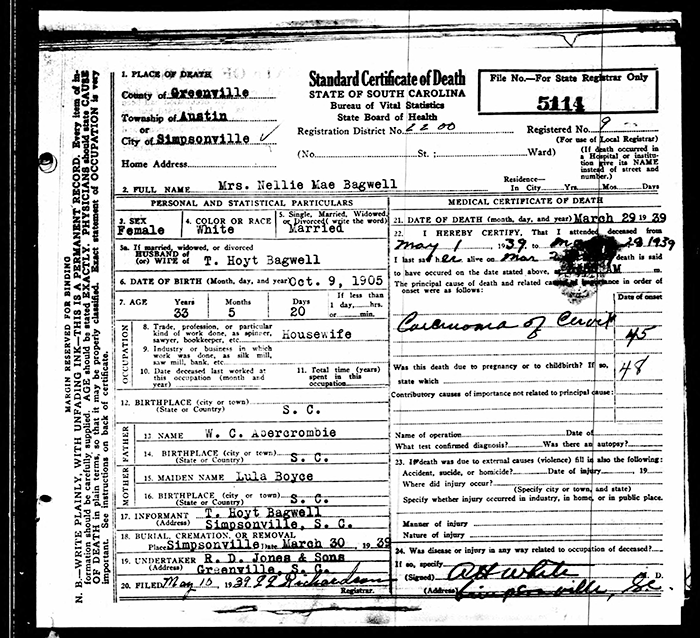 N. B.—WRITE PLAINLY, WITH UNFADING INK—THIS IS A PERMANENT RECORD. Every item of information should be carefully supplied. AGE should be stated EXACTLY. PHYSICIANS should state CAUSE OF DEATH in plain terms, so that it may be properly classified. Exact statement of OCCUPATION is very important. See instructions on back of certificate.
MARGIN RESERVED FOR BINDING
1. PLACE OF DEATH
County of Greenville
Township of Austin
or
City of Simpsonville
Home Address
Standard Certificate of Death
STATE OF SOUTH CAROLINA
Bureau of Vital Statistics
State Board of Health
Registration District No. 2200
(No. St.; Ward)
File No—For State Registrar Only
5114
Registered No. 9
(For use of Local Registrar)
(If death occurred in a Hospital or institution give its NAME instead of street and number.)
Residence—
In City Yrs. Mos. Days
2. FULL NAME Mrs. Nellie Mae Bagwell
PERSONAL AND STATISTICAL PARTICULARS
3. SEX
Female
4. COLOR OR RACE
White
5. Single, Married, Widowed, or Divorced (write the word)
Married
5a. If married, widowed, or divorced
HUSBAND of
(or) WIFE of T. Hoyt Bagwell
6. DATE OF BIRTH (Month, day, and year) Oct. 9, 1905
7. AGE Years Months Days If less than
33 5 20 1 day,....hrs.
or .....min.
OCCUPATION
8. Trade, profession, or particular kind of work done, as spinner, sawyer, bookkeeper, etc. Housewife
9. Industry or business in which work was done, as silk mill, saw mill, bank, etc.
10. Date deceased last worked at this occupation (month and year)
11. Total time (years) spent in this occupation
12. BIRTHPLACE (city or town)
(State or Country) S. C.
FATHER
13 NAME W. C. Abercrombie
14. BIRTHPLACE (city or town)
(State or Country) S. C.
MOTHER
15. MAIDEN NAME Lula Boyce
16. BIRTHPLACE (city or town)
(State or Country) S. C.
17. INFORMANT T. Hoyt Bagwell
(Address) Simpsonville, S. C.
18. BURIAL, CREMATION, OR REMOVAL
Place Simpsonville Date March 30 1939
19. UNDERTAKER R. D. Jones & Sons
(Address) Greenville, S. C.
20. FILED May 10, 1939 Richardson
Registrar.
MEDICAL CERTIFICATE OF DEATH
21. DATE OF DEATH (month, day, and year) March 29 1939
22. I HEREBY CERTIFY, That I attended deceased from
May 1, 1939, to 28 1939
I last saw her alive on Mar 2 death is said
to have occured on the date stated above, at AM m.
The principal cause of death and related causes of importance in order of onset were as follows:
Date of onset
Carcinoma of Cervix
45
48
Was this death due to pregnancy or to childbirth? If so,
state which
Contributory causes of importance not related to principal cause:
Name of operation Date of
What test confirmed diagnosis? Was there an autopsy?
23. If death was due to external causes (violence) fill in also the following:
Accident, suicide, or homicide? Date of injury 19
Where did injury occur?
(Specify city or town, and state)
Specify whether injury occurred in industry, in home, or in public place.
Manner of injury
Nature of injury
24. Was disease or injury in any way related to occupation of deceased?
If so, specify
(Signed) White M. D.
(Address) Simpsonville, S.C.